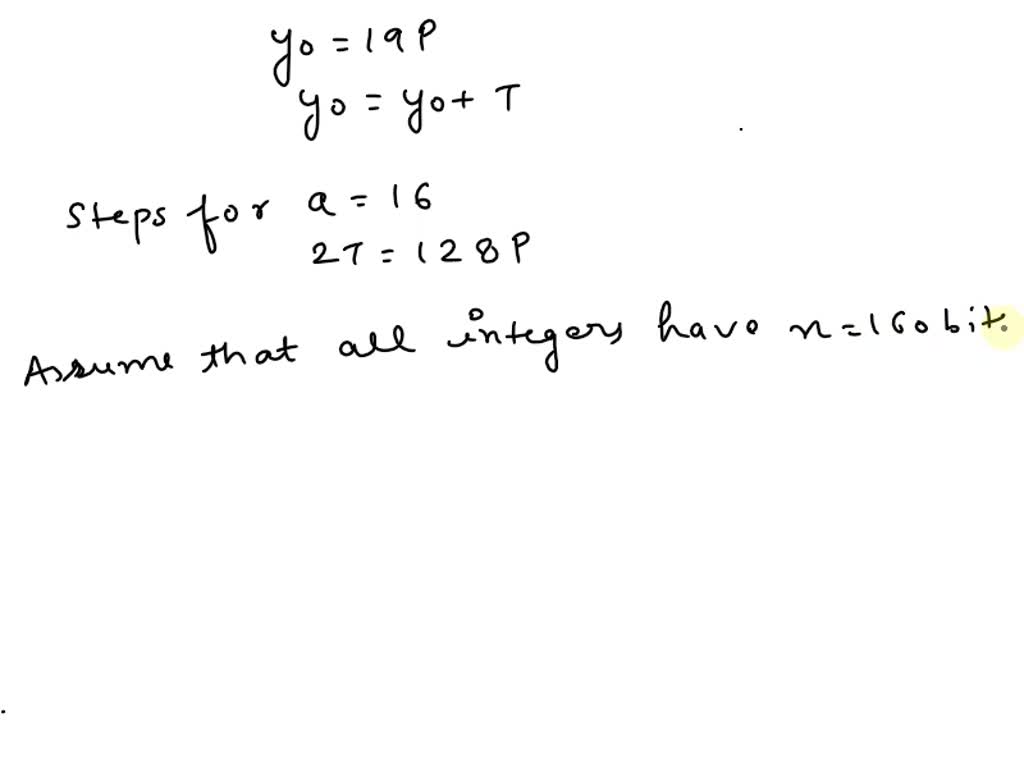 y0 = 19P
y0 = y0 + T
Steps for a = 16
2T = 128P
Assume that all integers have n = 160 bit.